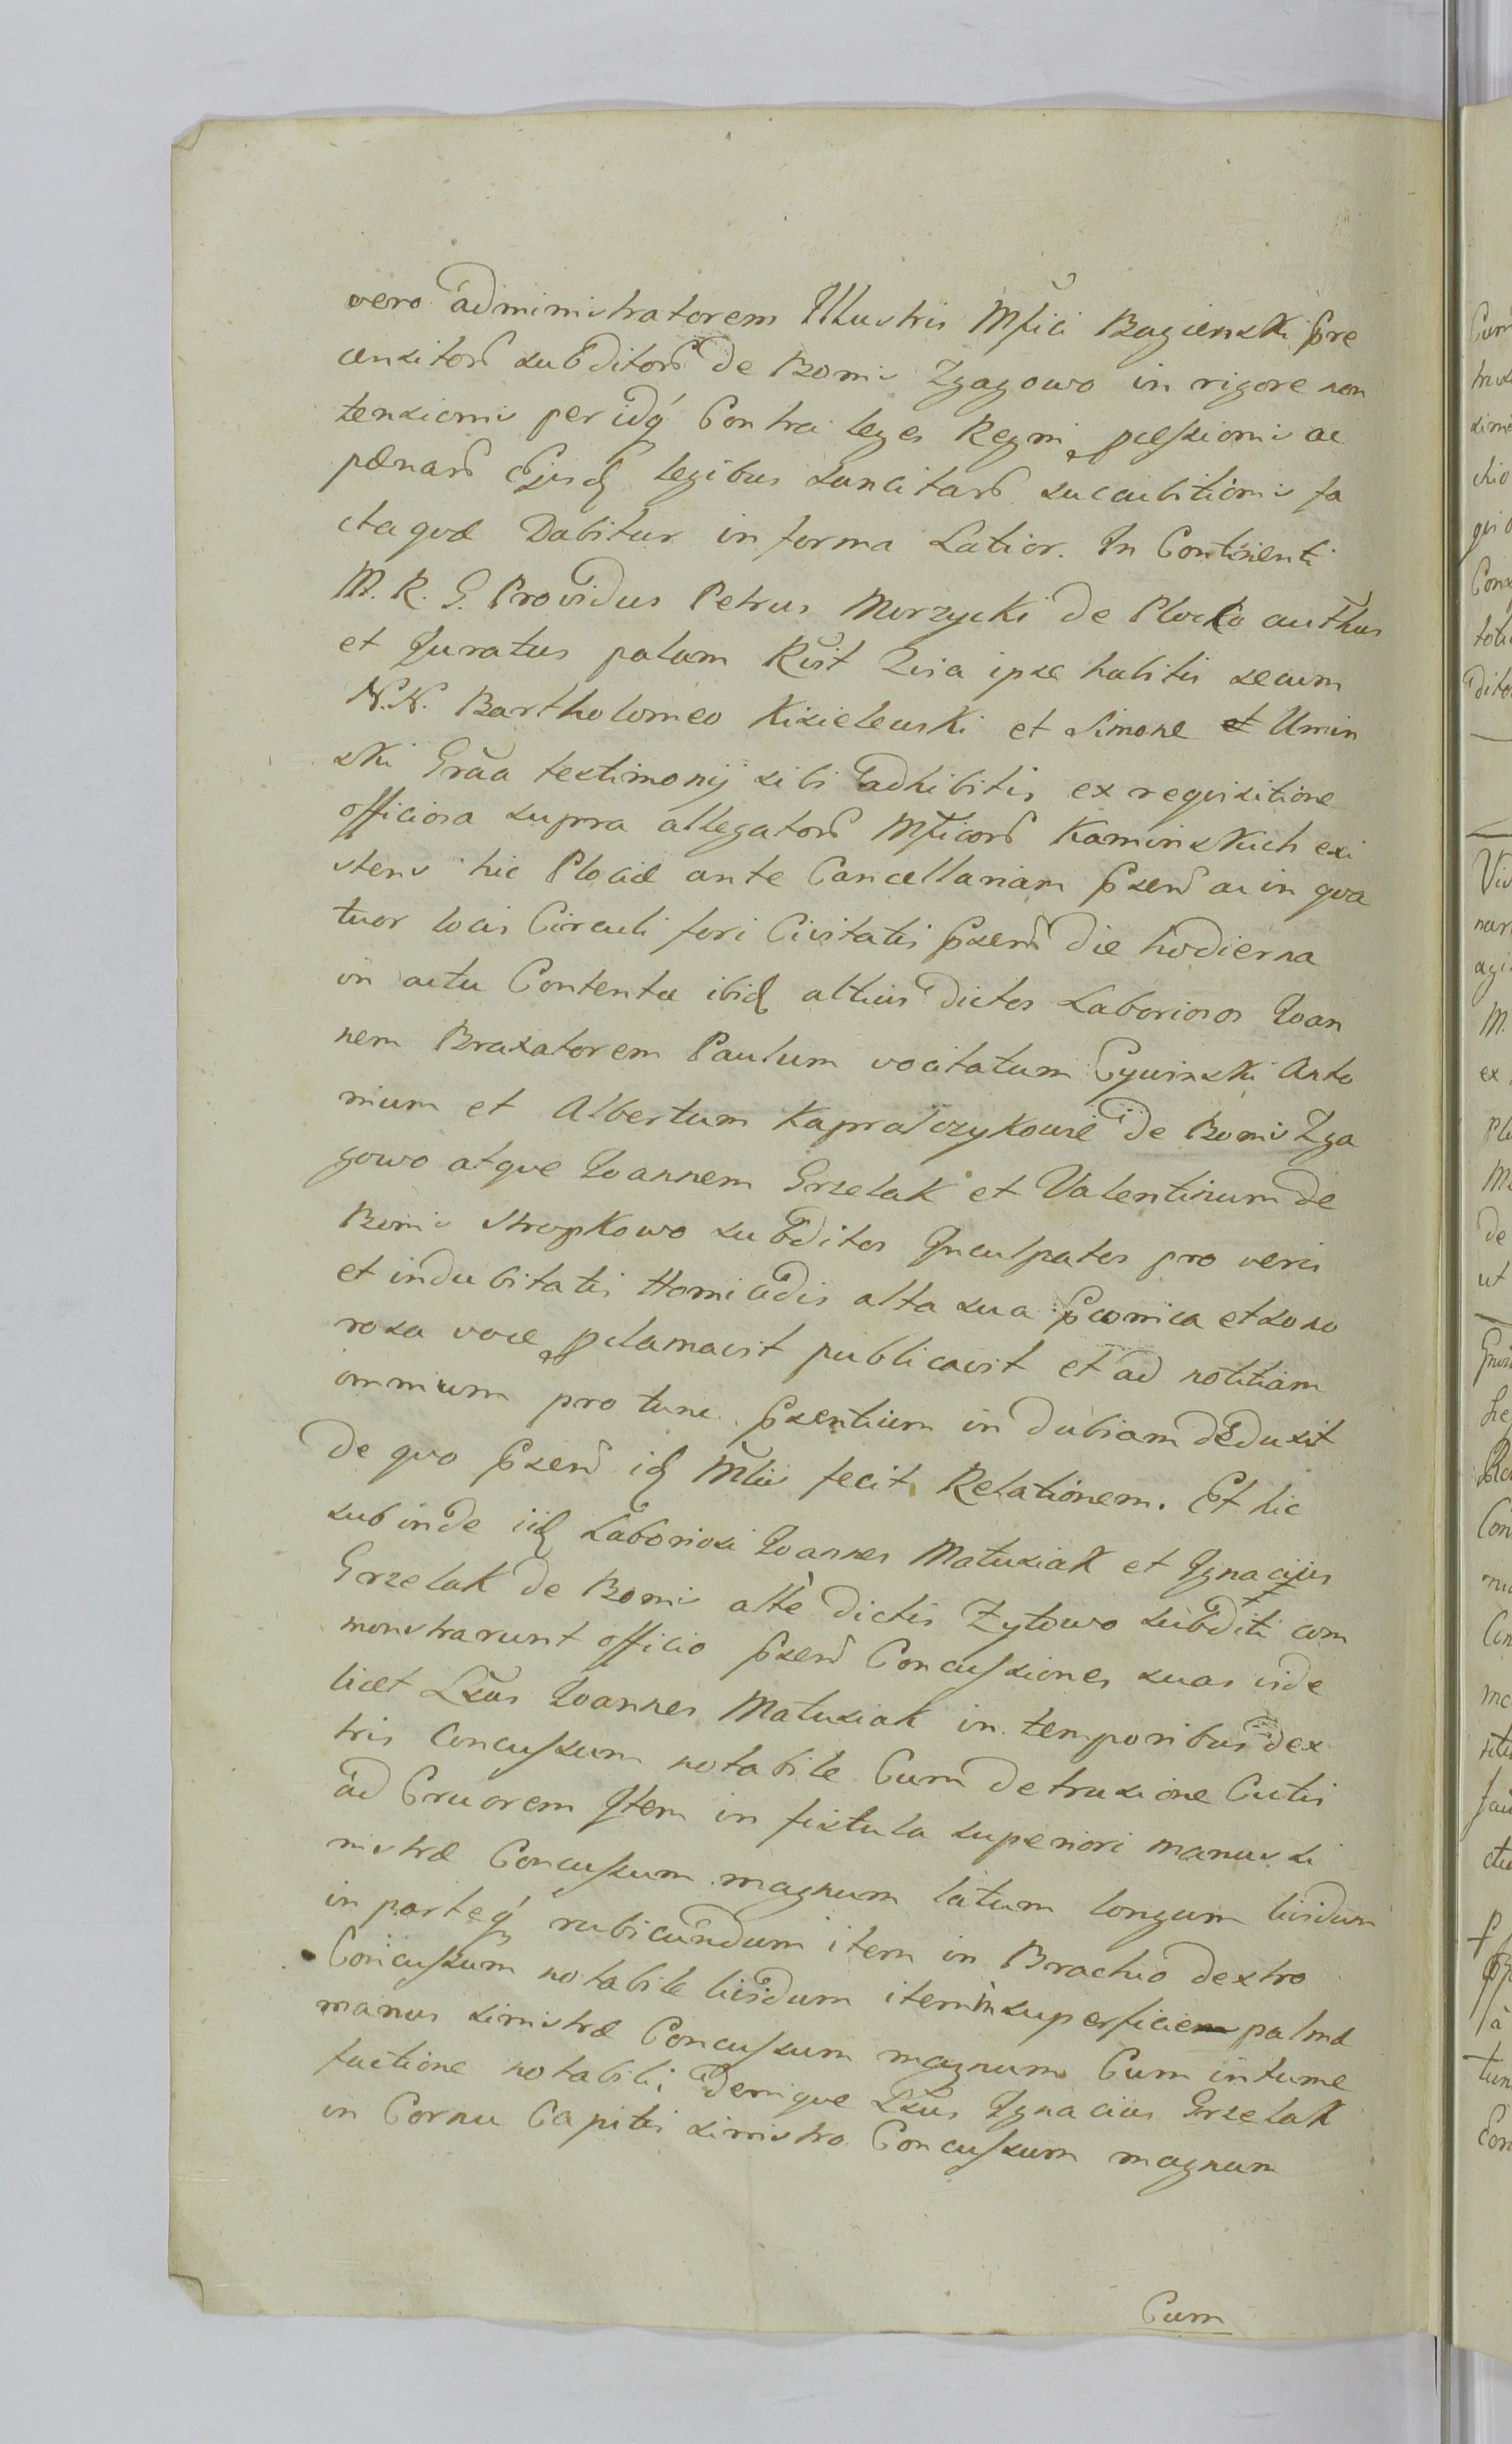 vero administratorem Illustris Mfici Bagienski pre
censitorũ subditorũ de Bonis Zgagowo in rigore non
tensionis per idq́ Contra leges Regni pgressionis ac
pænarũ Ejusd legibus sancitarũ succubitionis fa
ctaqvæ Dabitur in forma Latior. In Continenti
M. R. G. Providus Petrus Morzycki de Plocko auth̃us
et Juratus palam Rũit Quia ipse habitis secum
N.N. Bartholomeo Kisielewski et Simone et Umin
ski Grãa testimonij sibi adhibitis ex reqvisitione
officiosa supra allegatorũ Mficorũ Kaminskich exi
stens hic Plociæ ante Cancellariam psem̃ ac in qva
tuor locis Circuli fori Civitatis psem̃ die hodierna
in actu Contenta ibid altius dictos Laboriosos Joan
nem Braxatorem Paulum vocitatum Cywinski Anto
nium et Albertum Kapralczykowie de Bonis Zga
gowo atqve Joannem Grzelak et Valentinum de
Bonis Stropkowo subditos Inculpatos pro veris
et indubitatis Homicidis alta sua pconica et sono
rosa voce pclamavit publicavit et ad notitiam
omnium pro tunc psentium in dubiam deduxit
de qvo psem̃ id Mlis fecit Relationem. Et hic
subinde iid Laboriosi Joannes Matusiak et Ignacius
Grzelak de Bonis altè dictis Zytowo subditi com
monstrarunt officio psem̃ Concussiones suas vide
licet Lsus Joannes Matusiak in temporibus dex
tris Concussum notabile Cum detrusione Cutis
ad Cruorem Item in fistula superiori manus si
nistræ Concussum magnum latum longum lividum
in parteq́ rubicundum item in Brachio dextro
Concussum notabile lividum item in superficie palmæ
manus sinistræ Concussum magnum Cum intume
factione notabili, deniqve Lsus Ignacius Grzelak
in Cornu Capitis sinistro Concussum magnum
Cum